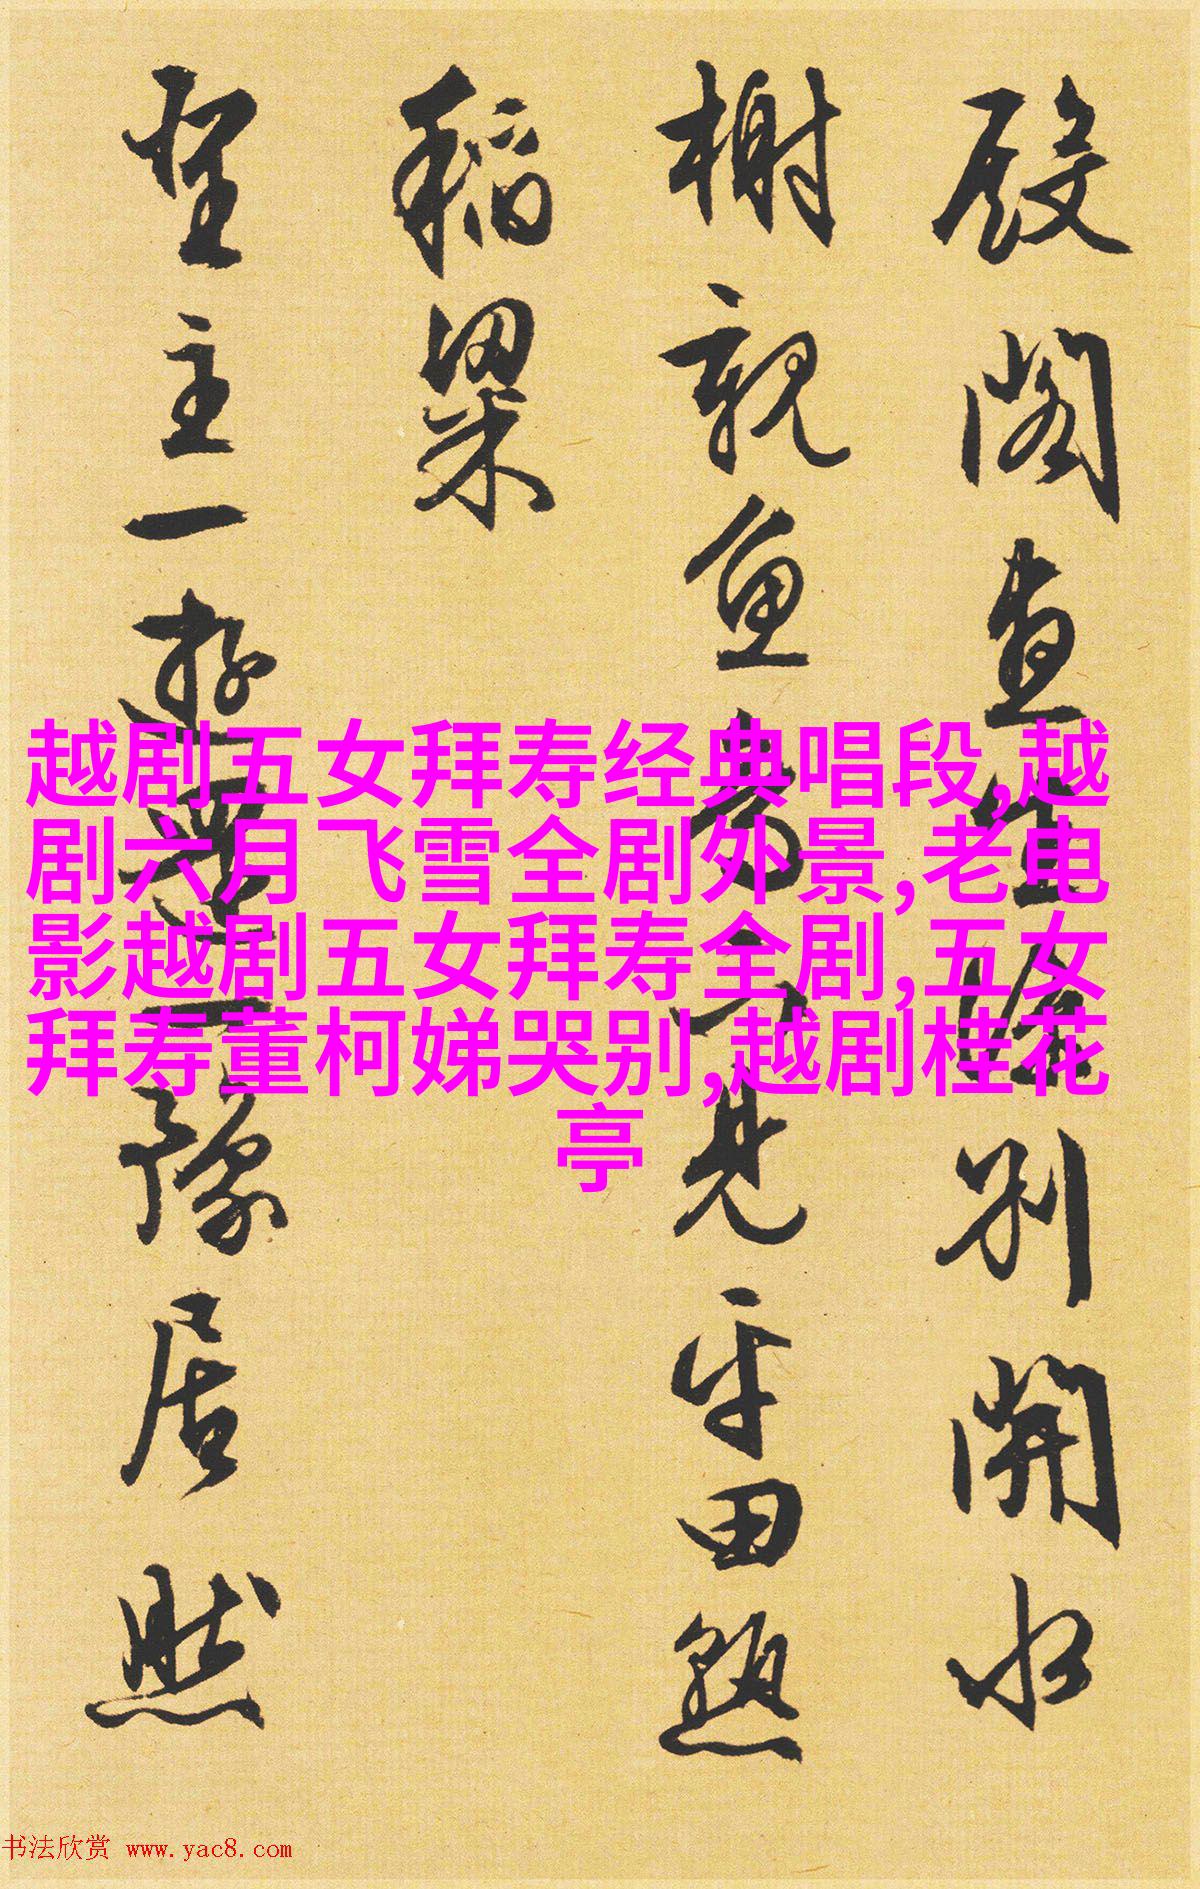 殿閣別開水
榭魚見平田熟
稻粱
聖主一遊一豫居然
越剧五女拜寿经典唱段,越
剧六月飞雪全剧外景,老电
影越剧五女拜寿全剧,五女
拜寿董柯娣哭别,越剧桂花
亭
书法欣赏 www.yac8.com